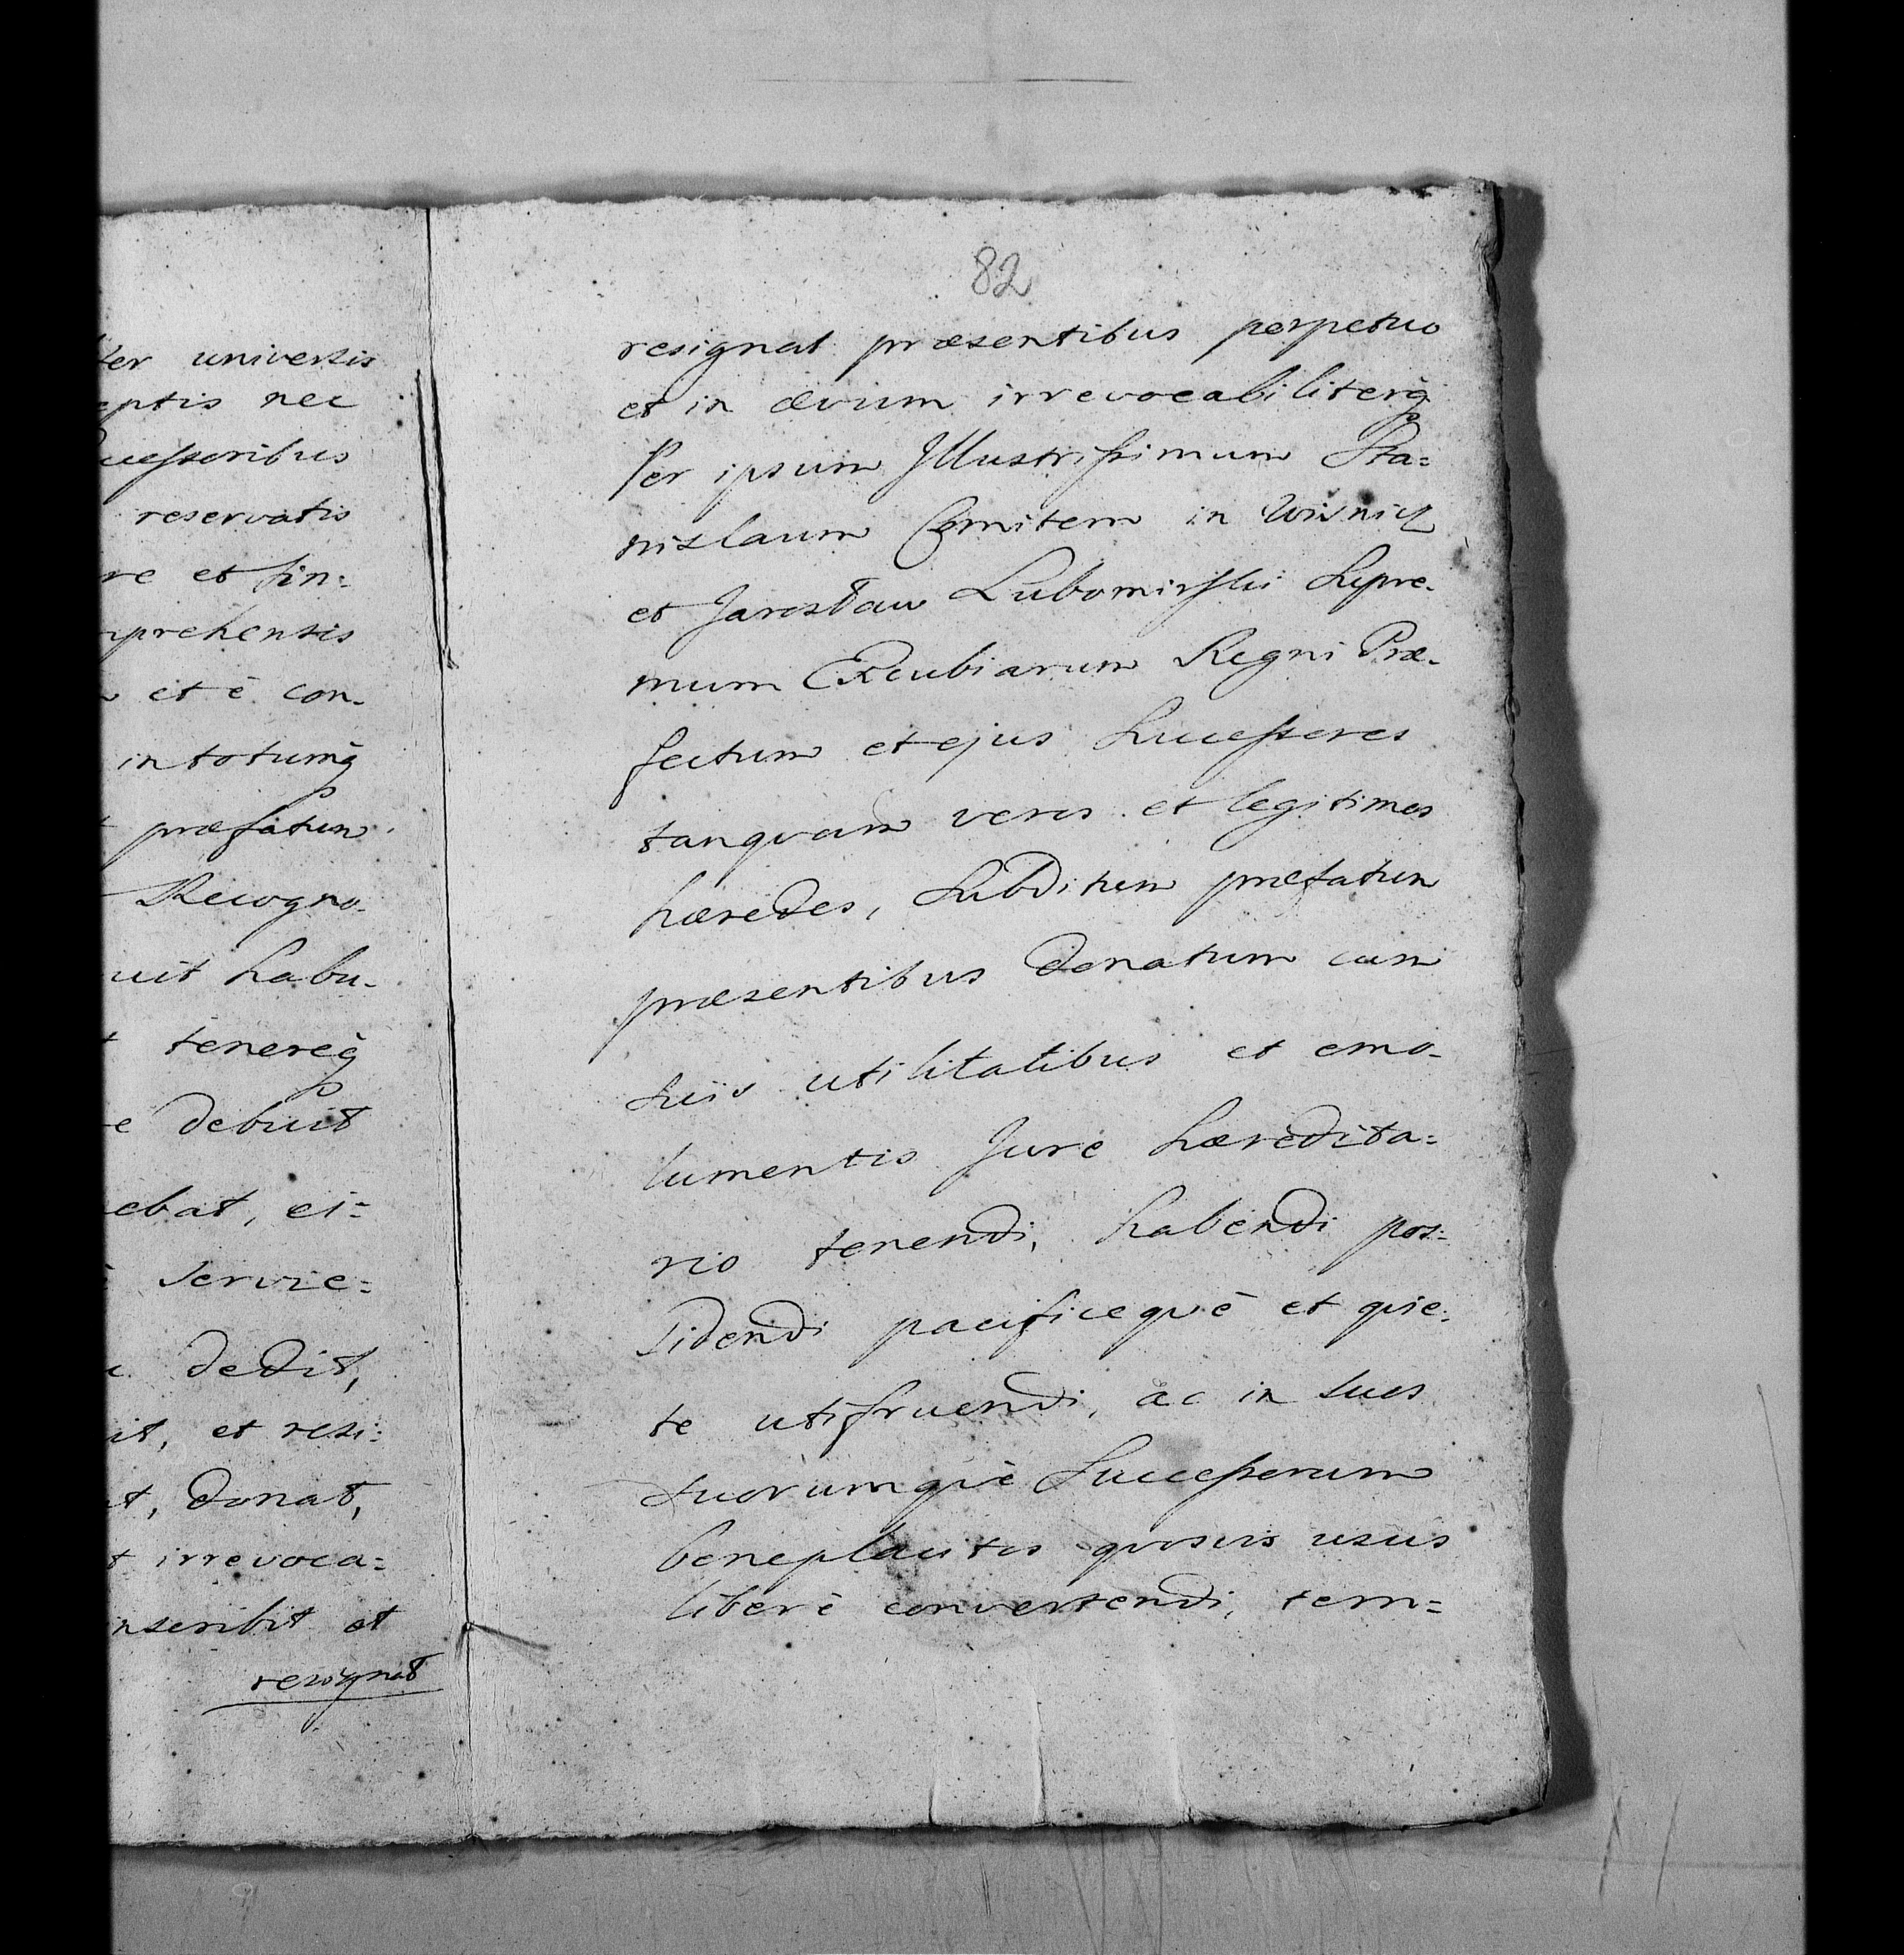 ter universis
eptis nec
ucessoribus
reservatis
re et sin:
mprehensis
et è con-
in totumq
præfatum
Recogno-
uit habu-
tenereq
e debuit
ebat, ei=
servie=
dedit,
it, et resi:
t, donat,
t irrevoca=
nscribit et
resignat
82
resignat præsentibus perpetuo
et in ævum irrevocabiliterq
Per ipsum Illustrissimum Sta=
nislaum Comitem in Wisnicz
et Jarosław Lubomirski Supre-
mum Excubiarum Regni Præ-
fectum et ejus Successores
tanquam veros et legitimos
hæredes, Subditum præfatum
præsentibus donatum cum
suis utilitatibus et emo-
lumentis Jure hæredita=
rio tenendi, habendi pos=
sidendi pacificequè et quie-
te utifruendi, ac in suos
suorumquè Successorum
beneplacitos quosvis usus
liberè convertendi, tem=